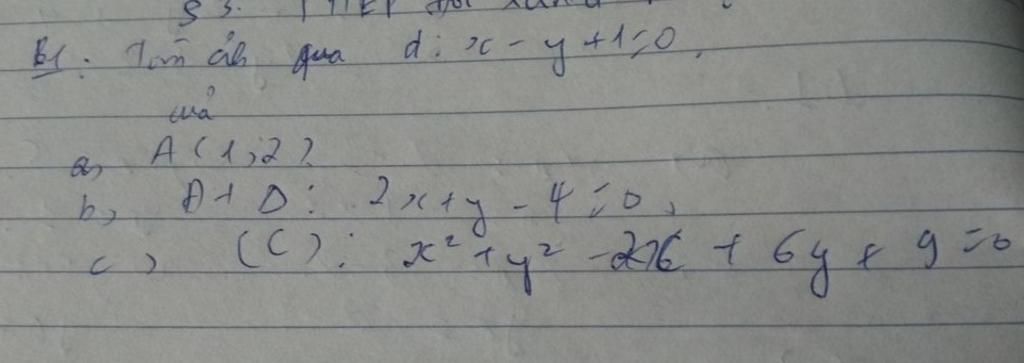 § 3.
B1: Tìm ảnh qua d: x - y + 1 = 0.
của
a, A(1;2)
b, Đt D: 2x + y - 4 = 0,
c) (C): x² + y² - 2x + 6y + 9 = 0